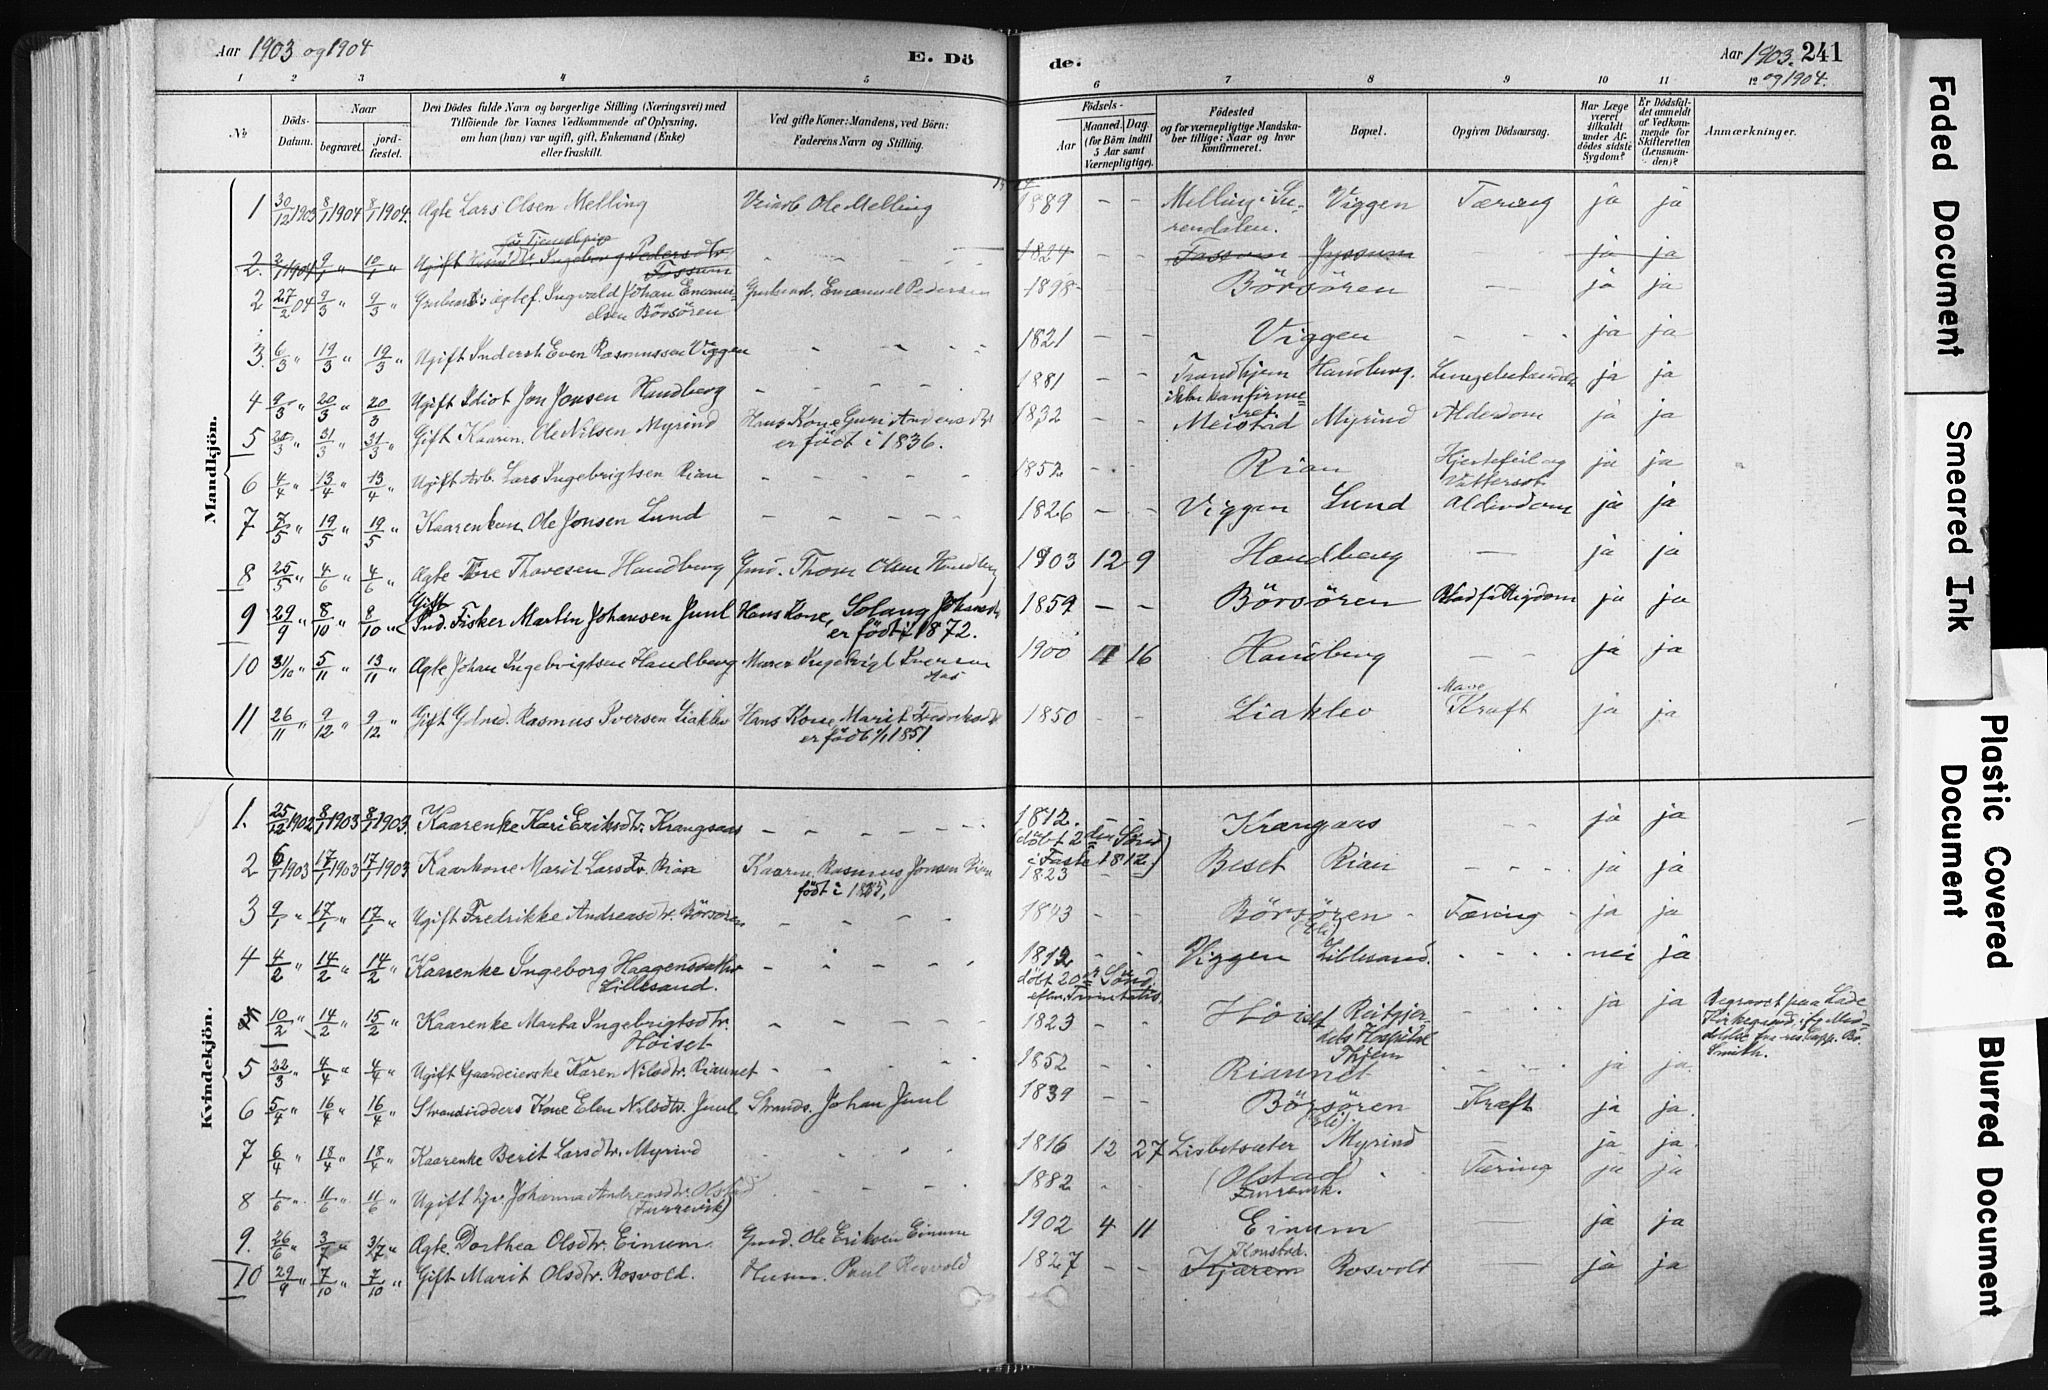 Aar 1903 og 1904
E. Dö
de.
Aar 1903. 241
og 1904.
1 2 3 4 5 6 7 8 9 10 11 12
No
Döds-Datum.
Naar
begravet.
jord-fæstet.
Den Dödes fulde Navn og borgerlige Stilling (Næringsvei) med
Tilföiende for Voxnes Vedkommende af Oplysning,
om han (hun) var ugift, gift, Enkemand (Enke)
eller fraskilt.
Ved gifte Koner: Mandens, ved Börn:
Faderens Navn og Stilling.
Födsels-
Aar
Maaned. Dag.
(for Börn indtil
5 Aar samt
Værnepligtige).
Födested
og for værnepligtige Mandska-
ber tillige: Naar og hvor
konfirmeret.
Bopæl.
Opgiven Dödsaarsag.
Har Læge
været
tilkaldt
under Af-
dödes sidste
Sygdom?
Er Dödsfal-
det anmeldt
af Vedkom-
mende for
Skifteretten
(Lensman-
den)?
Anmærkninger.
Mandkjön.
1 30/12 1903 8/1 1904 8/1 1904. Ægte Lars Olsen Melling Ole Melling 1889 - - Melling i Su-
rendalen. Viggen Tæring ja ja
2. 2/1 1904 9/1 " 10/1 " Ugift Ingeborg Pedersdtr
Fossum 1824 Fossum ja ja
2 27/2 04 9/3 " 9/3 " Ingvald Johan Emanu-
elsen Börsören Emanuel Pedersen 1898 - - Börsören - ja ja
3. 6/3 " 19/3 " 19/3 " Ugift Inderst Even Rasmussen Viggen - - 1821 - - Viggen - - ja ja
4 9/3 " 20/3 " 20/3 Ugift Idiot Jon Jonsen Handberg - - 1881 - - Trondhjem
ikke konfirme-
ret. Handberg. ja ja
5 31/3 " 31/3 " Gift Kaarm. Ole Nilsen Myrind Hans Kone Guri Andersdtr
er född i 1836. 1832 - - Meistad Myrind Alderdom ja ja
6 4/4 " 13/4 " 13/4 " Ugift Arb. Lars Ingebrigtsen Rian - - 1852 - - Rian Hjertefeil og
Vattersot ja ja
7 7/5 " 19/5 " 19/5 " Kaarenkem. Ole Jonsen Lund - - 1826 - - Viggen Lund Alderdom ja ja
8 25/5 " 4/6 " 4/6 " Ægte Tore Thoresen Handberg Gmd. Thore Olsen Handberg 1903 12 9 Handberg - ja ja
9 29/9 " 8/10 " 8/10 " Gift
Ind. Fisker Martin Johansen Juul Hans Kone, Solaug Johansdtr
er född i 1872. 1859 - - Börsören Blodfattigdom ja ja
10 31/10 " 5/11 " 13/11 " Ægte Johan Ingebrigtsen Handberg Murer Ingebrigt Iversen
Aas 1900 4 16 Handberg - - ja ja
11 26/11 " 9/12 " 9/12 " Gift Rasmus Iversen Liaklev Hans Kone Marit Fredriksdtr
er född 1/1 1851 1850 - - Liaklev Mave
Kræft ja ja
Kvindekjön.
1. 25/12 1902 8/1 1903 8/1 1903. Kaarenke Kari Eriksdtr. Krangsaas - - 1812. - -
(döbt 2den Sönd.
i Faste 1812.) Krangsaas - - ja ja
2 6/1 1903 17/1 1903 17/1 1903 Kaarkone Marit Larsdtr. Rian Kaarm. Rasmus Jonsen Rian
född i 1825. 1823 - - Beset Rian - - ja ja
3 9/1 " 17/1 " 17/1 " Ugift Fredrikke Andreasdtr. Börsören - - 1843 - - Börsören
(Eli) Tæring ja ja
4 4/2 " 14/2 " 14/2 " Kaarenke Ingeborg Haagensdatter
Lillesand. - - 1812 - -
döbt 20de Sönd.
efter Trinitatis. Viggen Lillesand. - - nei ja
5 10/2 " 14/2 " 15/2 " Kaarenke Marta Ingebrigtsdtr.
Höiset - - 1823 - - Höiset Reitgjer-
dets Hospital
Thjem ja ja Begravet paa Lade
Kirkegaard, ifg Med-
delelse fra res. Capp. Br.
Smith.
5 22/3 " 4/4 " 4/4 " Ugift Karen Nilsdtr. Riaunet - - 1852 - - Riaunet - - ja ja.
6 5/4 " 16/4 " 16/4 " Strandsidders Kone Elen Nilsdtr. Juul Strands. Johan Juul 1839 - - Börsören
(Eli). Kræft ja ja.
7 6/4 " 18/4 " 18/4 " Kaarenke Berit Larsdtr. Myrind - - 1816 12 27 Lisbetsæter Myrind - ja ja.
8 1/6 " 11/6 " 11/6 " Ugift tjp. Johanna Andreasdtr. Olstad
(Furrevik) - - 1882 - - (Olstad)
Furrevik. Tæring ja ja
9. 26/6 " 3/7 " 3/7 " Ægte. Dorthea Olsdtr. Einum Gmd. Ole Eriksen Einum 1902 4 11 Einum - ja ja
10 29/9 " 7/10 " 7/10 " Gift Marit Olsdtr. Rosvold. Husm. Paul Rosvold 1827 - - Kjærem Rosvold ja ja
Faded Document
Smeared Ink
Plastic Covered
Document
Blurred Document